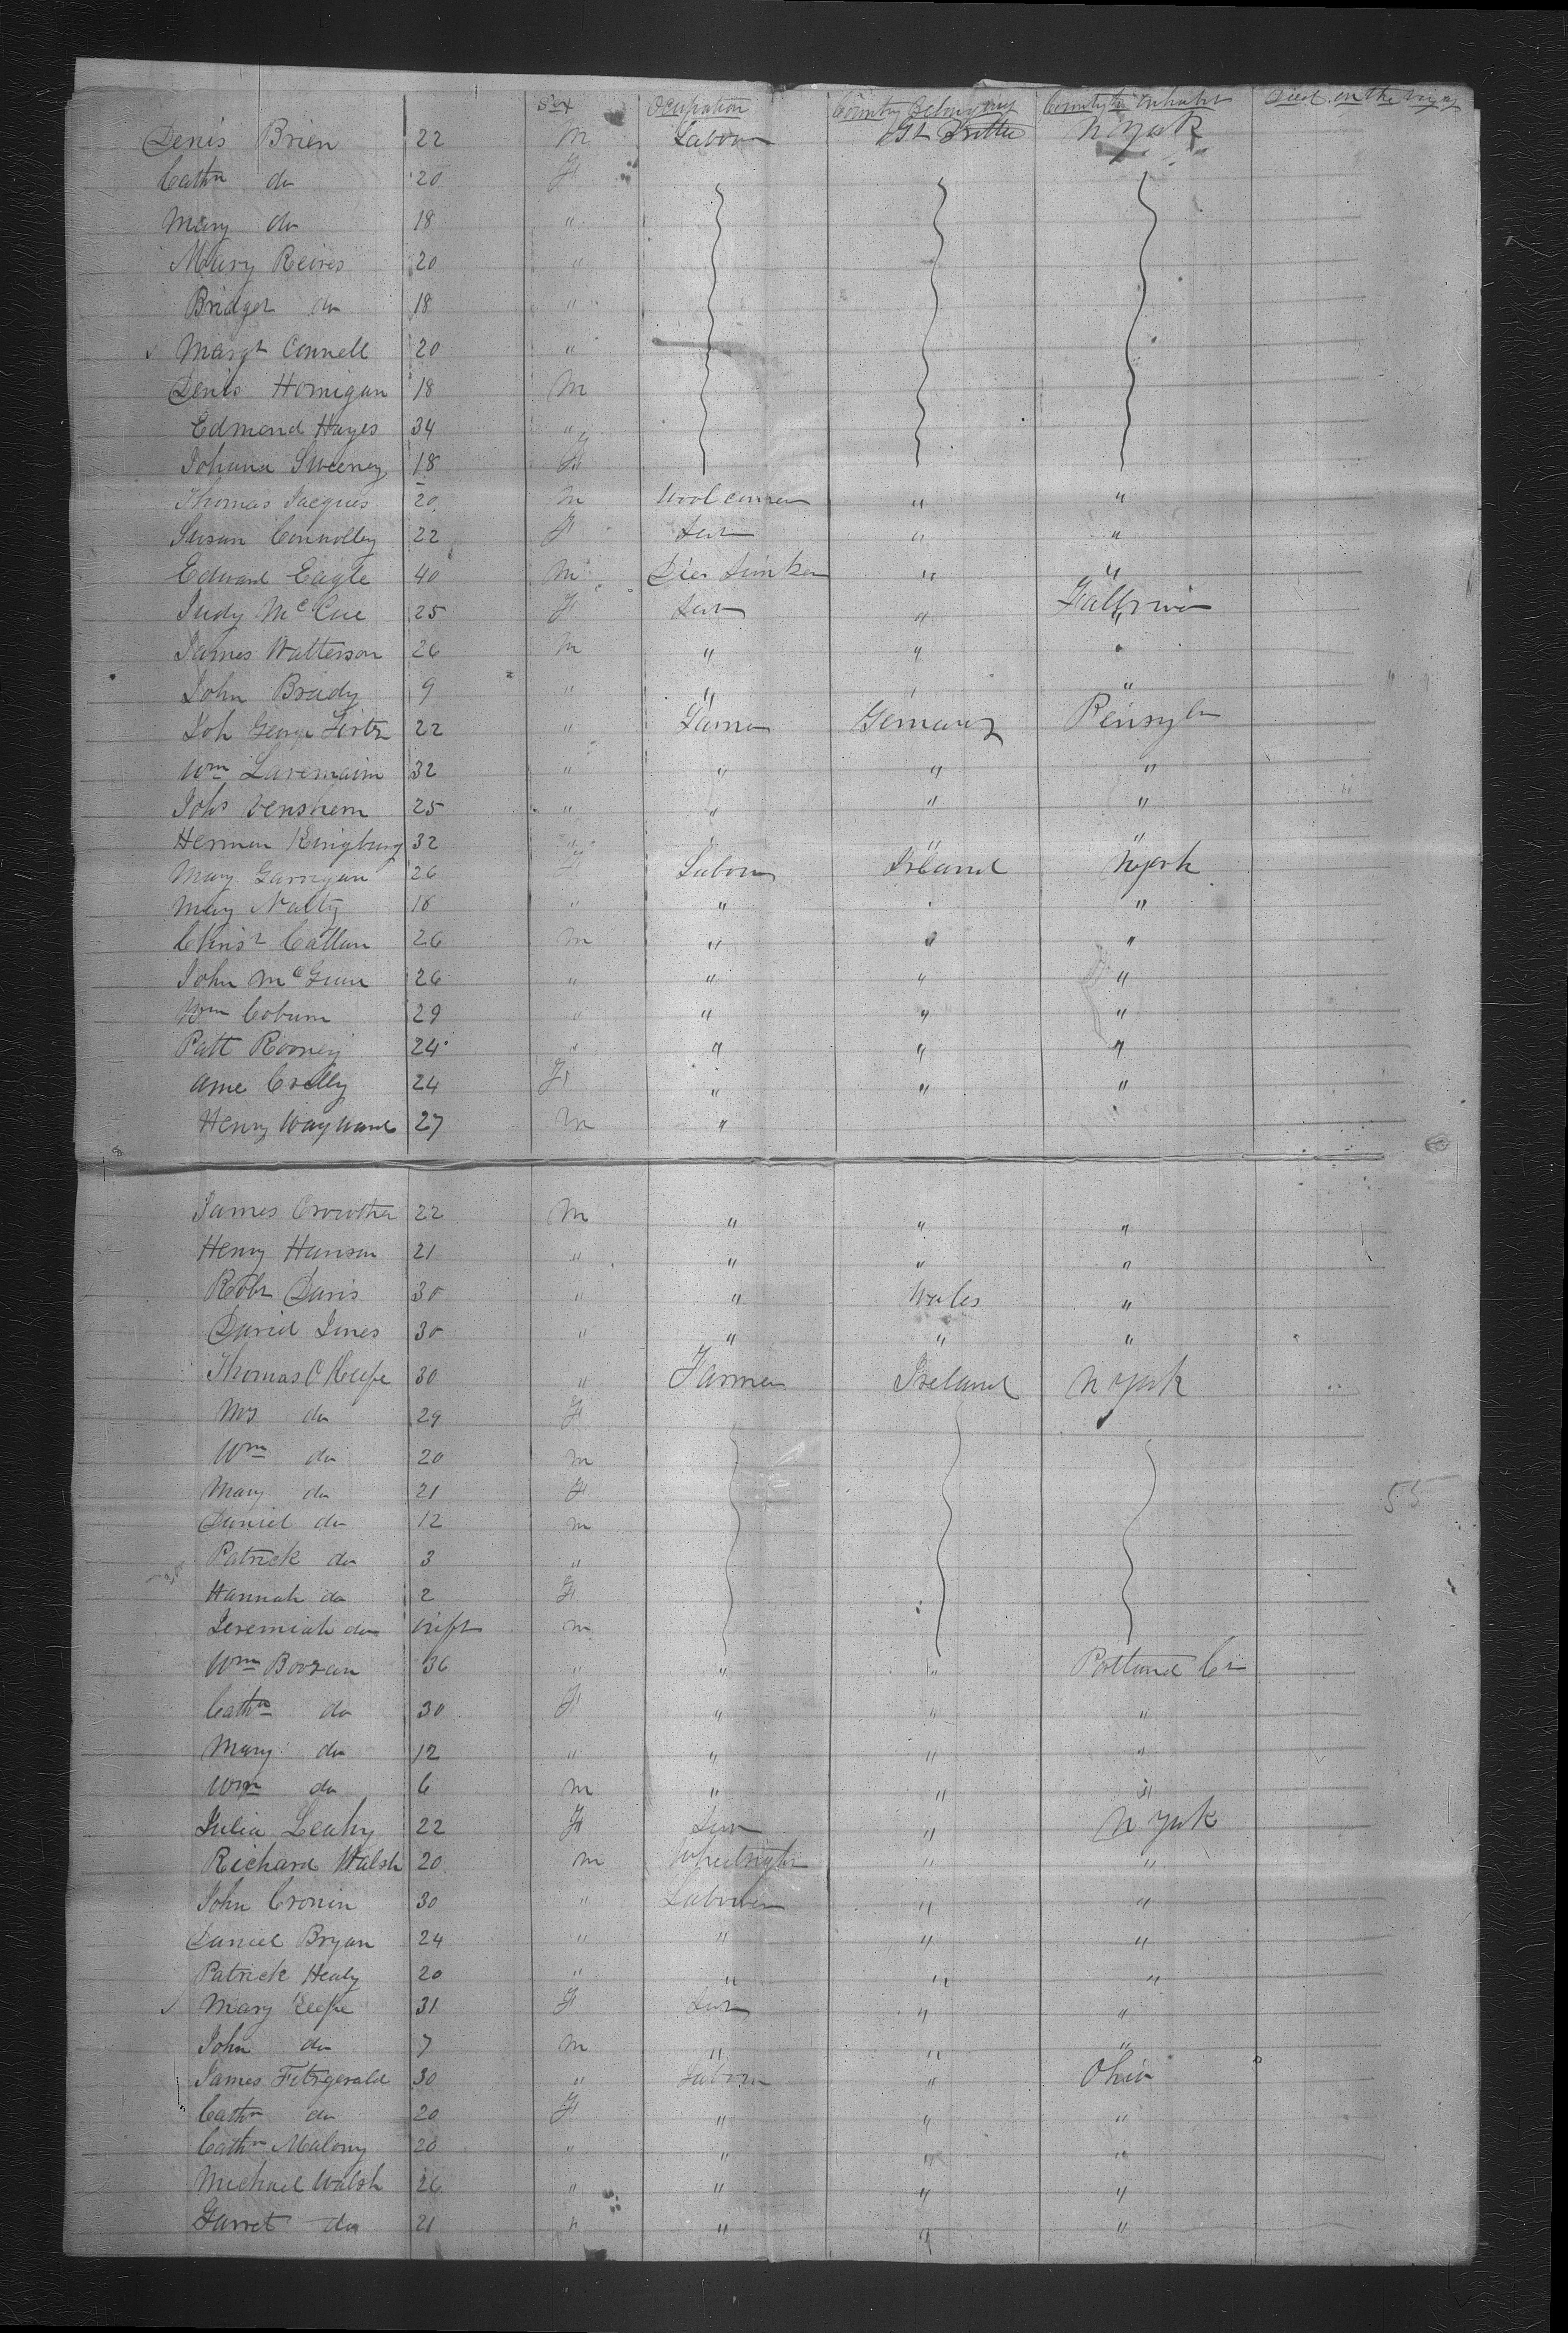 Sex Ocupation Country Belonging Country to inhabit Died on the Voyage
Denis Brien 22 M Labour Gt Brittn N York
Cathn do 20 F
Mary do 18 "
Mary Reives 20 "
Bridget do 18 "
Margt Connell 20 "
Denis Hornigan 18 M
Edmond Hayes 34 "
Johana Sweeney 18 F
Thomas Jacques 20 M Wool comer " "
Susan Connolley 22 F Sert " "
Edward Eagle 40 M Dier Sinker " "
Judy McCue 25 F Sert " Fallriver
James Watterson 26 M " " "
John Brady 9 " " " "
Joh George Firtz 22 " Farmer Gemany Pensyla
Wm Laremaim 32 " " " "
Johs Venshem 25 " " " "
Herman Kingburg 32 " " " "
Mary Garrigan 26 F Labour Irland NYork
Mary Nalty 18 " " " "
Christ Callan 26 M " " "
John McGunn 26 " " " "
Wm Coburn 29 " " " "
Patt Rooney 24 " " " "
Ame Crelly 24 F " " "
Henry Wayward 27 M "
James Crowther 22 M " " "
Henry Hanson 21 " " " "
Robt Davis 30 " " Wales "
David Jones 30 " " " "
Thomas O Keefe 30 " Farmer Ireland N York
Mrs do 29 F
Wm do 20 M
Mary do 21 F
Daniel do 12 M
Patrick do 3 "
Hannah do 2 F
Jeremiah do inft M
Wm Boozan 36 " " " Portland Ct
Cathn do 30 F " " "
Mary do 12 " " " "
Wm do 6 M " " "
Julia Leahy 22 F Sert " N York
Richard Walsh 20 M Wheelright " "
John Cronin 30 " Labourer " "
Daniel Bryan 24 " " " "
Patrick Healy 20 " " " "
Mary Keefe 31 F Sert " "
John do 7 M " " "
James Fitzgerald 30 " Labour " Ohio
Cathn do 20 F " " "
Cathn Malony 20 " " " "
Michael Walsh 26 " " " "
Garret do 21 " " " "
55